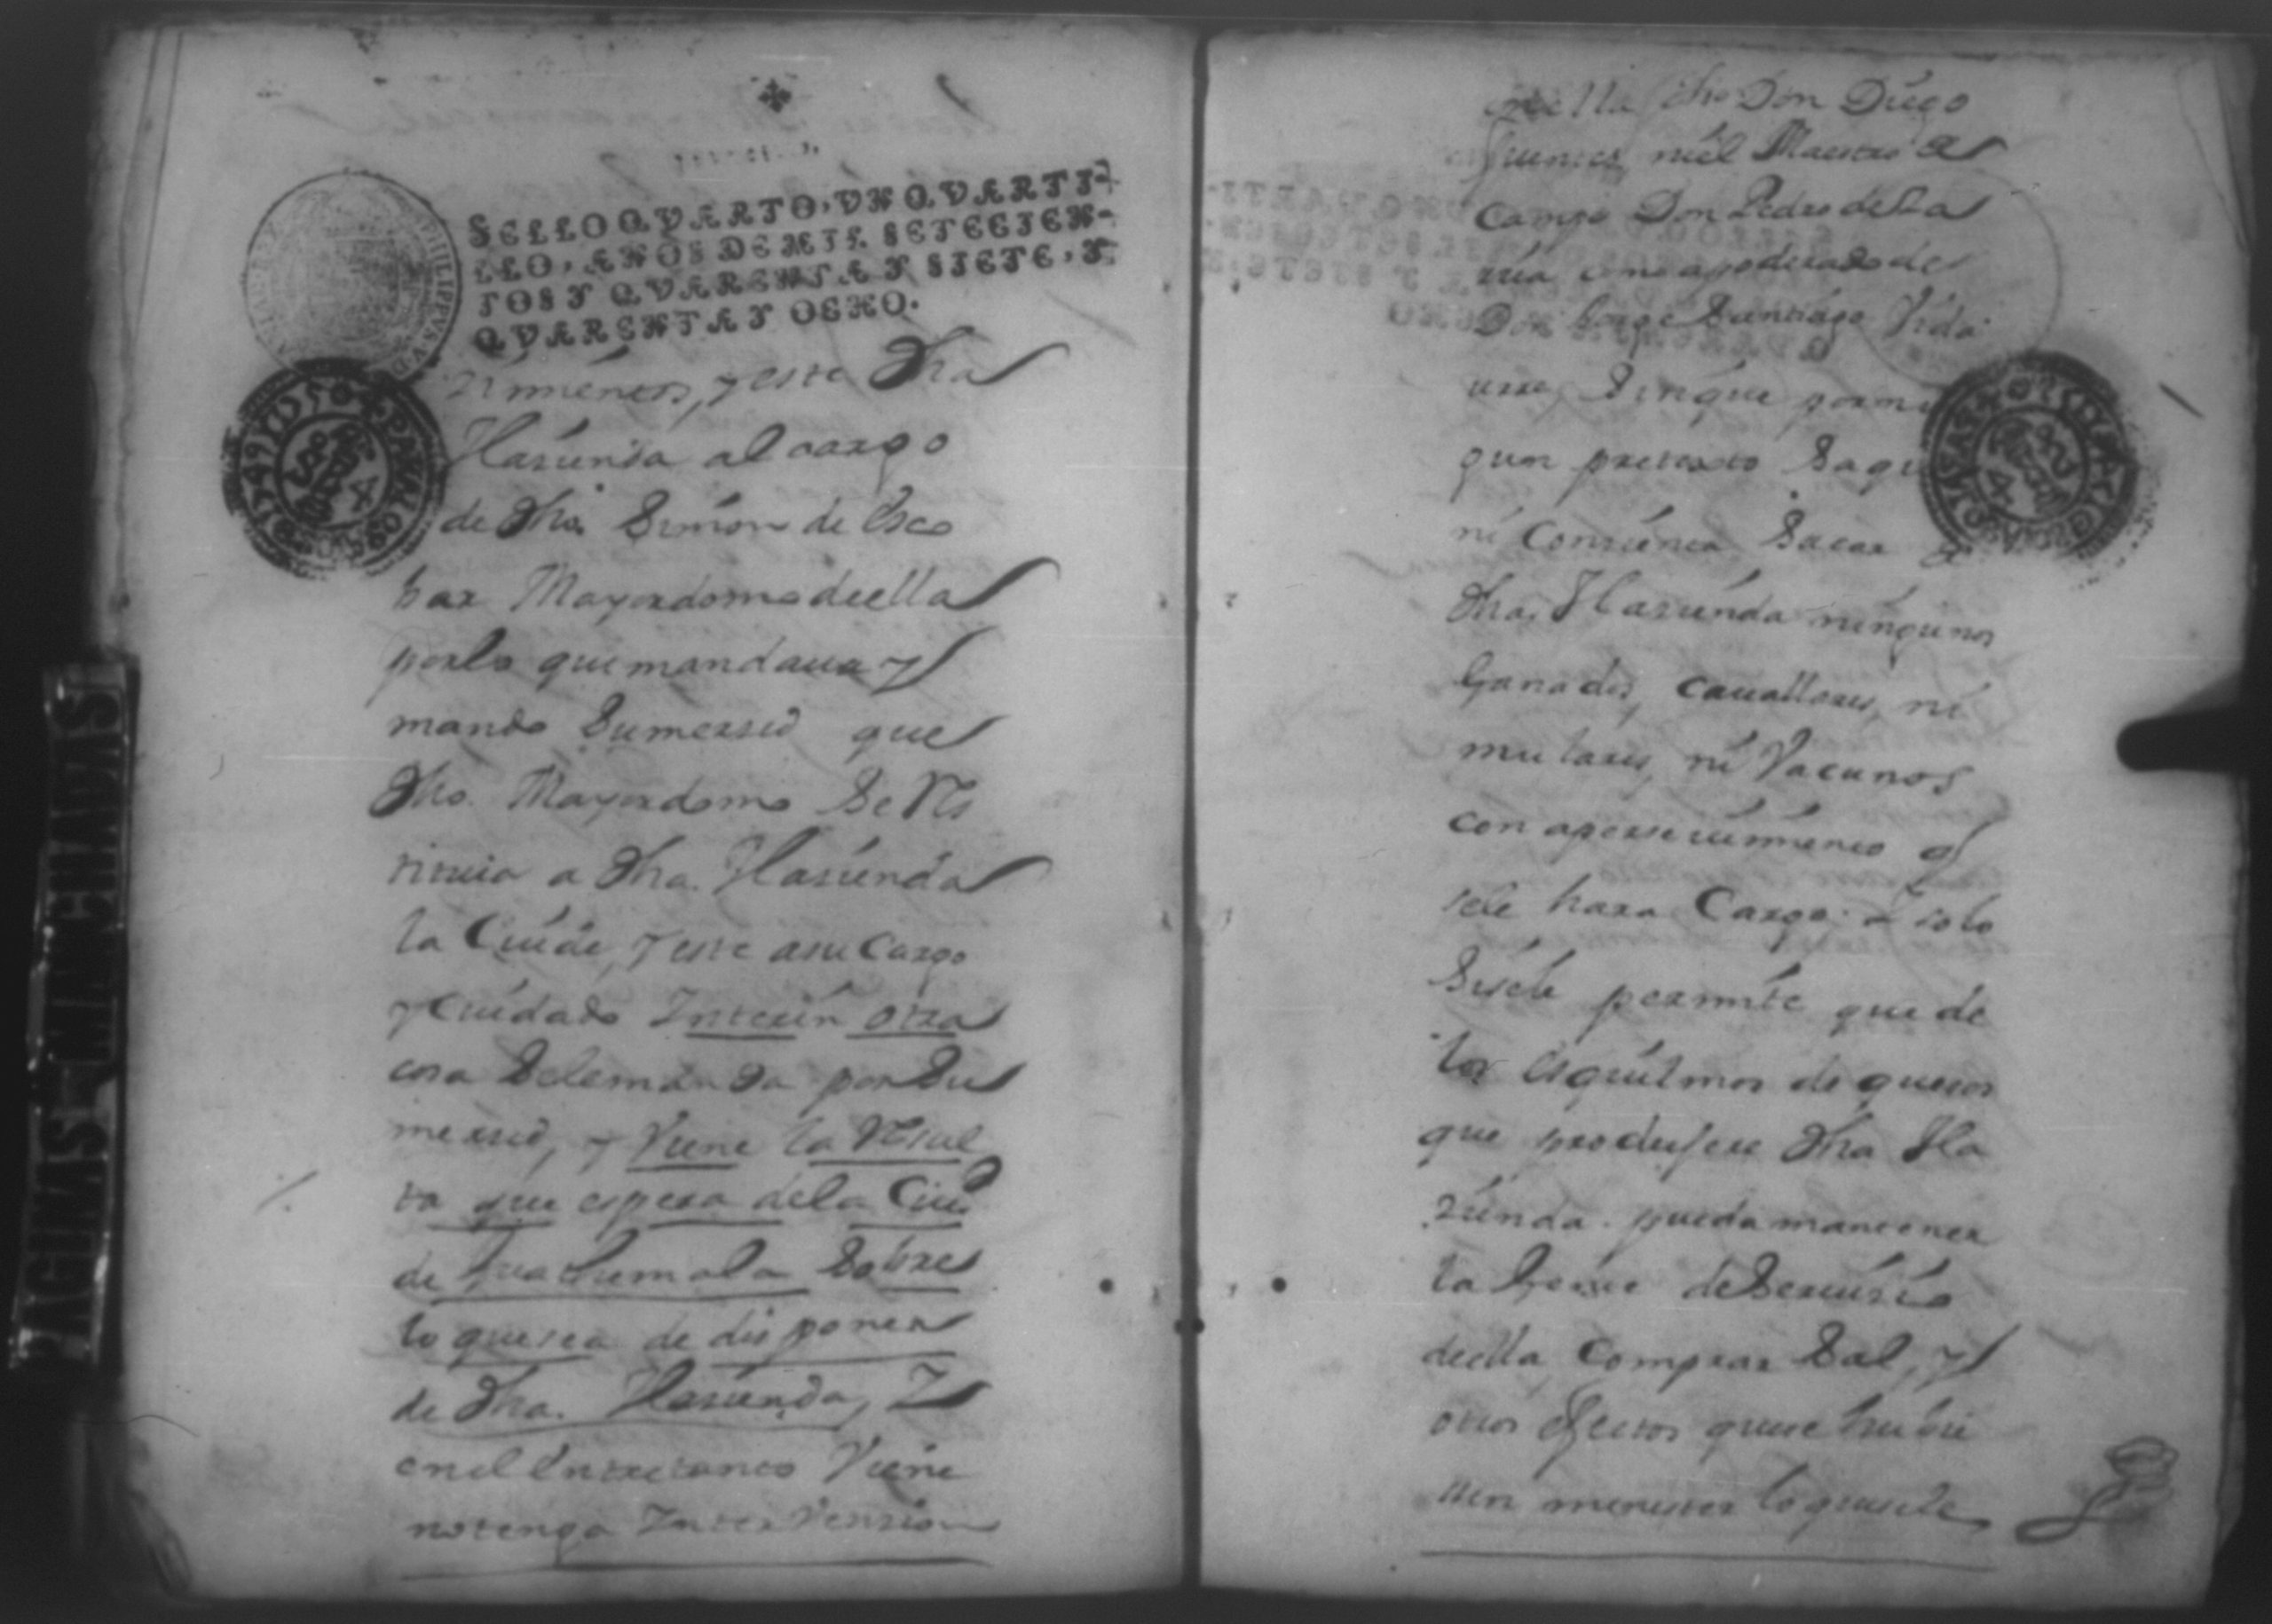 SELLO QVARTO, VN QVARTI-
LLO, AÑOS DE MIL SETECIEN-
TOS Y QVARENTA Y SIETE, Y
QVARENTA Y OCHO.
zimientos, y este dha
Hazienda al cargo
de dho. Simon de Esco
bar Mayordomo de ella
por lo que mandaua y
mando Su mersed que
dho. Mayordomo Se Res
tituia a dha. Hazienda
la Cuide, y este a su Cargo
y cuidado Interin otra
cosa Se le manda por Su
mersed, y Viene la Resul
ta que espera de la Ciud
de Guathemala Sobre
lo que sea de disponer
de dha. Hazienda, Y
en el entretanto Viene
no tenga InterVension
en ella dho Don Diego
fuentes, ni el Maestre de
Campo Don Pedro de La
como apoderado de
Don Jorge Santiago Vida
urre, Sin que por nin
gun pretexto Saque
ni Consienta Sacar de
dha. Hazienda ningunos
Ganados, cauallares, ni
mulares, ni Vacunos
con aperseuimiento q
se le hara Cargo: i solo
Si se le permite que de
los esquilmos de quesos
que produjere dha Ha
zienda pueda mantener
la Gente de Seruisio
de ella Comprar Sal, y
otros efectos que se hubie
ren menester lo que se le